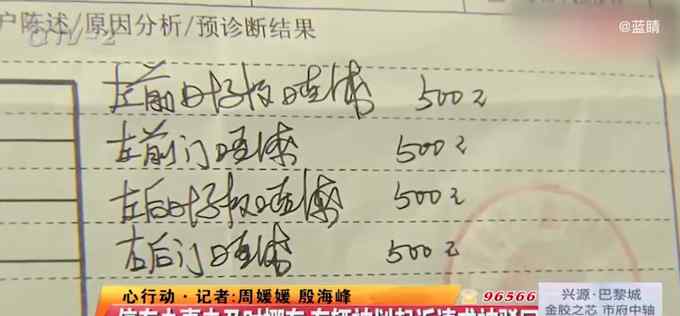 户陈述/原因分析/预诊断结果
@蓝睛
左前叶子板喷漆 500元
左前门喷漆 500元
左后叶子板喷漆 500元
左后门喷漆 500元
心行动·记者:周媛媛 殷海峰
96566
兴源·巴黎城
金胶之芯 市府中轴